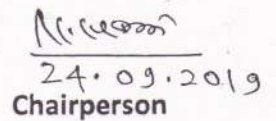 24.09.2019
Chairperson